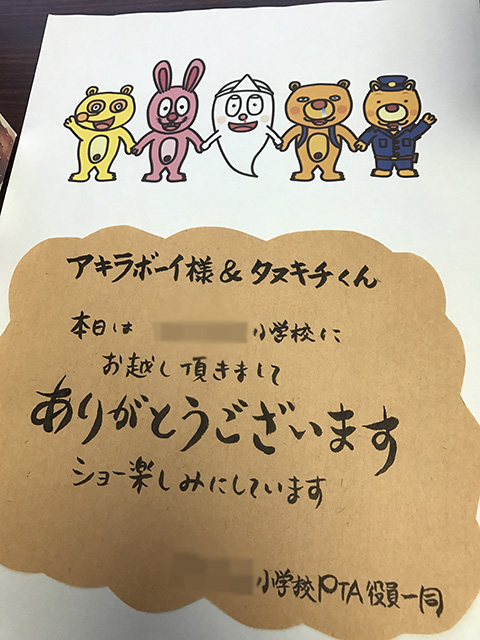 アキラボーイ様 & タヌキチくん
本日は 小学校に
お越し頂きまして
ありがとうございます
ショー楽しみにしています
小学校PTA役員一同